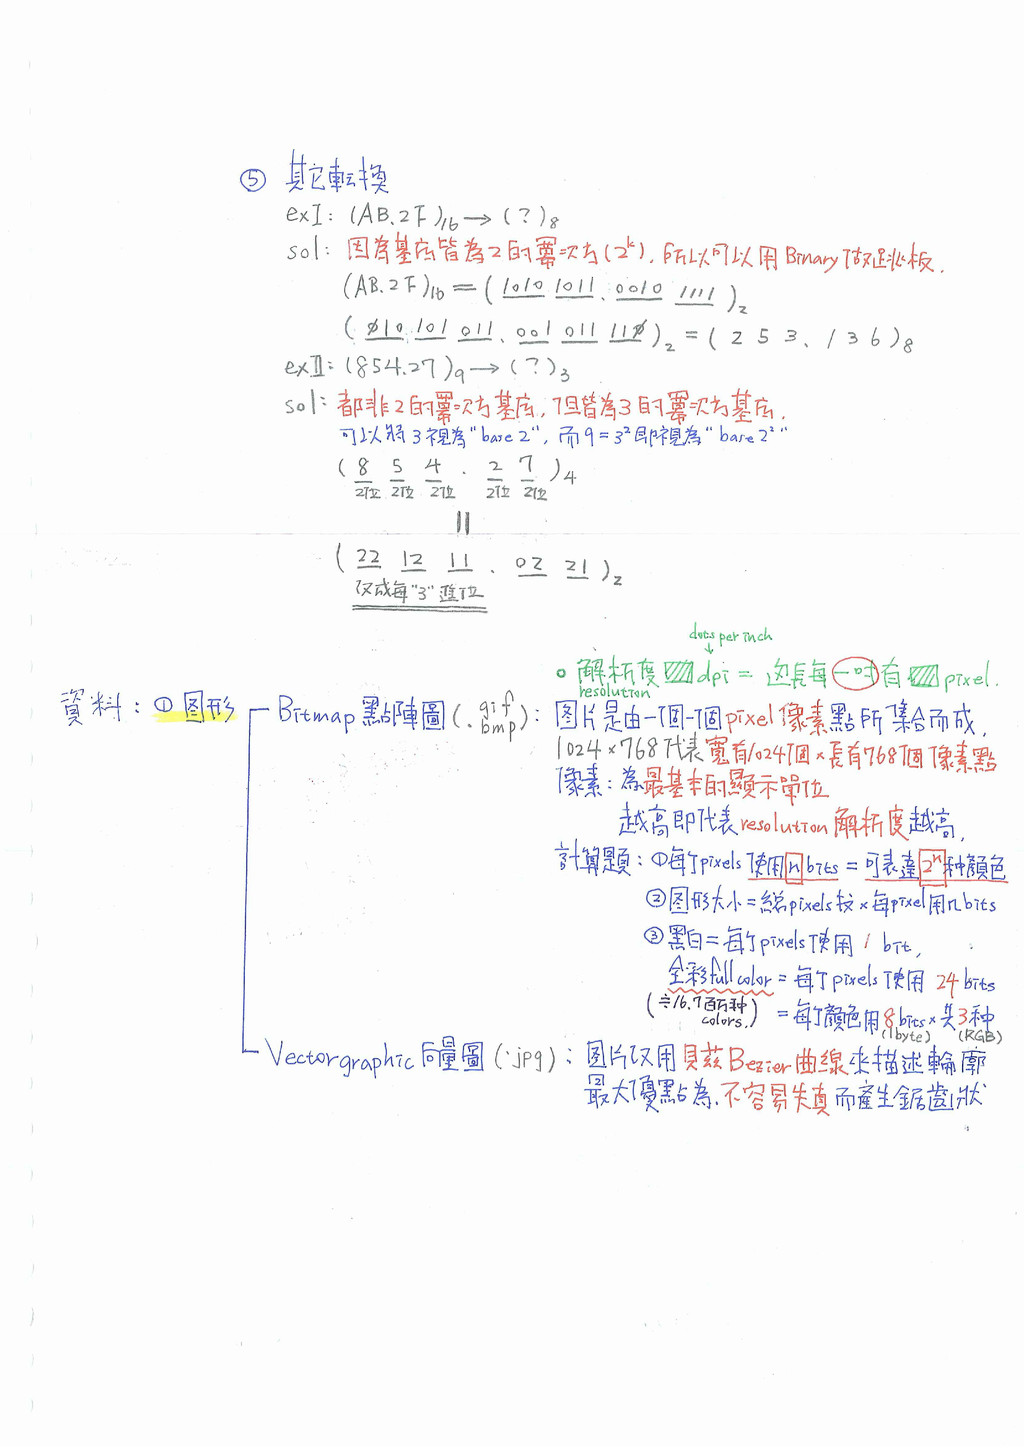 ⑤ 其它転換
exⅠ: (AB.2F)₁₆ → (?)₈
sol: 因為基底皆為2的冪次方(2ᵏ), 所以可以用Binary做跳板.
(AB.2F)₁₆ = ( 1010 1011 . 0010 1111 )₂
( 010 101 011 . 001 011 110 )₂ = ( 2 5 3 . 1 3 6 )₈
exⅡ: (854.27)₉ → (?)₃
sol: 都非2的冪次方基底, 但皆為3的冪次方基底,
可以將3視為"base 2", 而9=3²即視為"base 2²"
( 8 5 4 . 2 7 )₄
2位 2位 2位 2位 2位
||
( 22 12 11 . 02 21 )₂
改成每"3"進位
dots per inch
↓
○ 解析度 dpi = 边長每一吋有 pixel.
resolution
資料: ①图形
Bitmap 點陣圖(.gif .bmp): 图片是由一個一個pixel像素點所集合而成,
1024×768代表寬有1024個×長有768個像素點
像素: 為最基本的顯示單位
越高即代表resolution解析度越高,
計算題: ①每个pixels使用n bits = 可表達2ⁿ种顏色
②图形大小=総pixels数×每pixel用n bits
③黑白=每个pixels使用 1 bit,
全彩full color = 每个pixels使用 24 bits
(≒16.7百万种colors,) = 每个顏色用8bits×共3种
(1byte) (RGB)
Vectorgraphic 向量圖(.jpg): 图片仅用貝茲Bezier曲線來描述輪廓
最大優點為,不容易失真而產生鋸齒狀